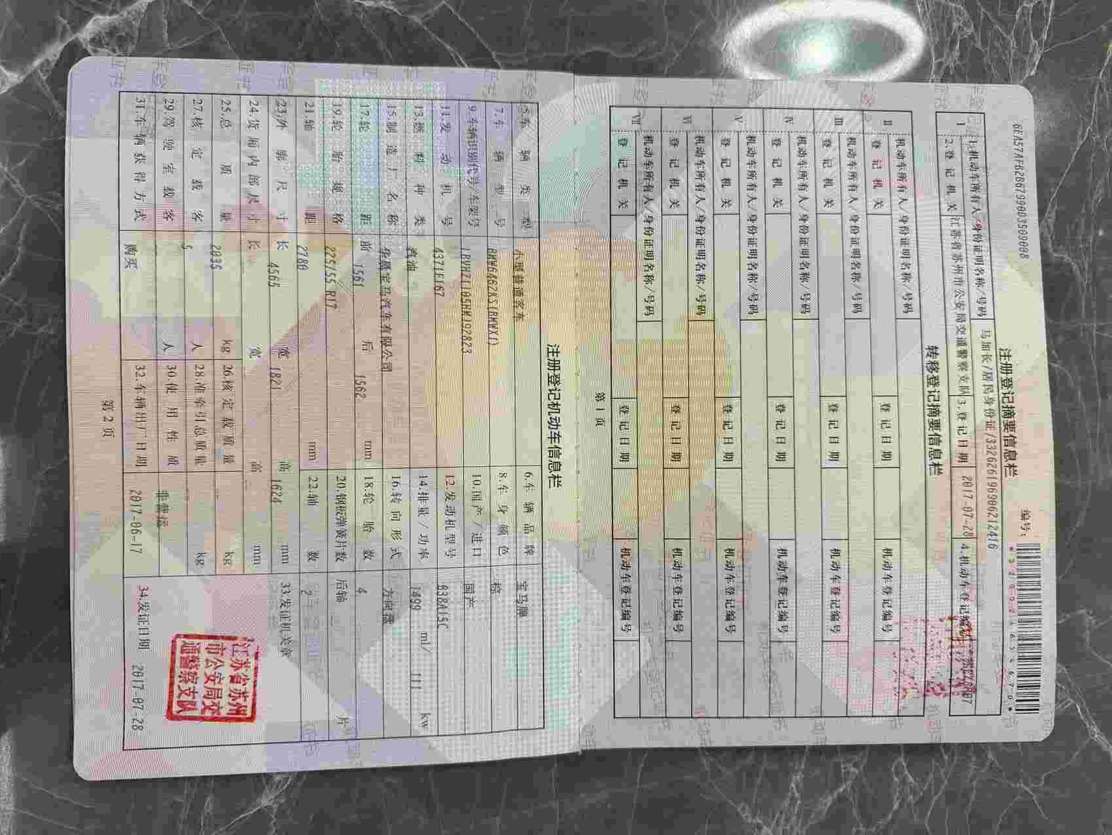 编号:
注册登记摘要信息栏
1.机动车所有人/身份证明名称/号码 马加长/居民身份证/332626196906212416
2.登记机关 江苏省苏州市公安局交通警察支队 3.登记日期 2017-07-28 4.机动车登记编号
转移登记摘要信息栏
II 机动车所有人/身份证明名称/号码
登记机关 登记日期 机动车登记编号
III 机动车所有人/身份证明名称/号码
登记机关 登记日期 机动车登记编号
IV 机动车所有人/身份证明名称/号码
登记机关 登记日期 机动车登记编号
V 机动车所有人/身份证明名称/号码
登记机关 登记日期 机动车登记编号
VI 机动车所有人/身份证明名称/号码
登记机关 登记日期 机动车登记编号
VII 机动车所有人/身份证明名称/号码
登记机关 登记日期 机动车登记编号
第 1 页
注册登记机动车信息栏
5.车辆类型 小型普通客车 6.车辆品牌 宝马牌
7.车辆型号 8.车身颜色 棕
9.车辆识别代号/车架号 10.国产/进口 国产
11.发动机号 4371F167 12.发动机型号 B38A15C
13.燃料种类 汽油 14.排量/功率 1499 ml/ 111 kw
15.制造厂名称 华晨宝马汽车有限公司 16.转向形式 方向盘
17.轮距 前 1561 后 1562 mm 18.轮胎数 4
19.轮胎规格 225/55 R17 20.钢板弹簧片数 后轴 片
21.轴距 2780 mm 22.轴数 2
23.外廓尺寸 长 4565 宽 1821 高 1624 mm 33.发证机关章
24.货厢内部尺寸 长 宽 高 mm
25.总质量 2035 kg 26.核定载质量 kg
27.核定载客 5 人 28.准牵引总质量 kg
29.驾驶室载客 人 30.使用性质 非营运
31.车辆获得方式 购买 32.车辆出厂日期 2017-06-17
江苏省苏州
市公安局交
通警察支队
34.发证日期 2017-07-28
第 2 页